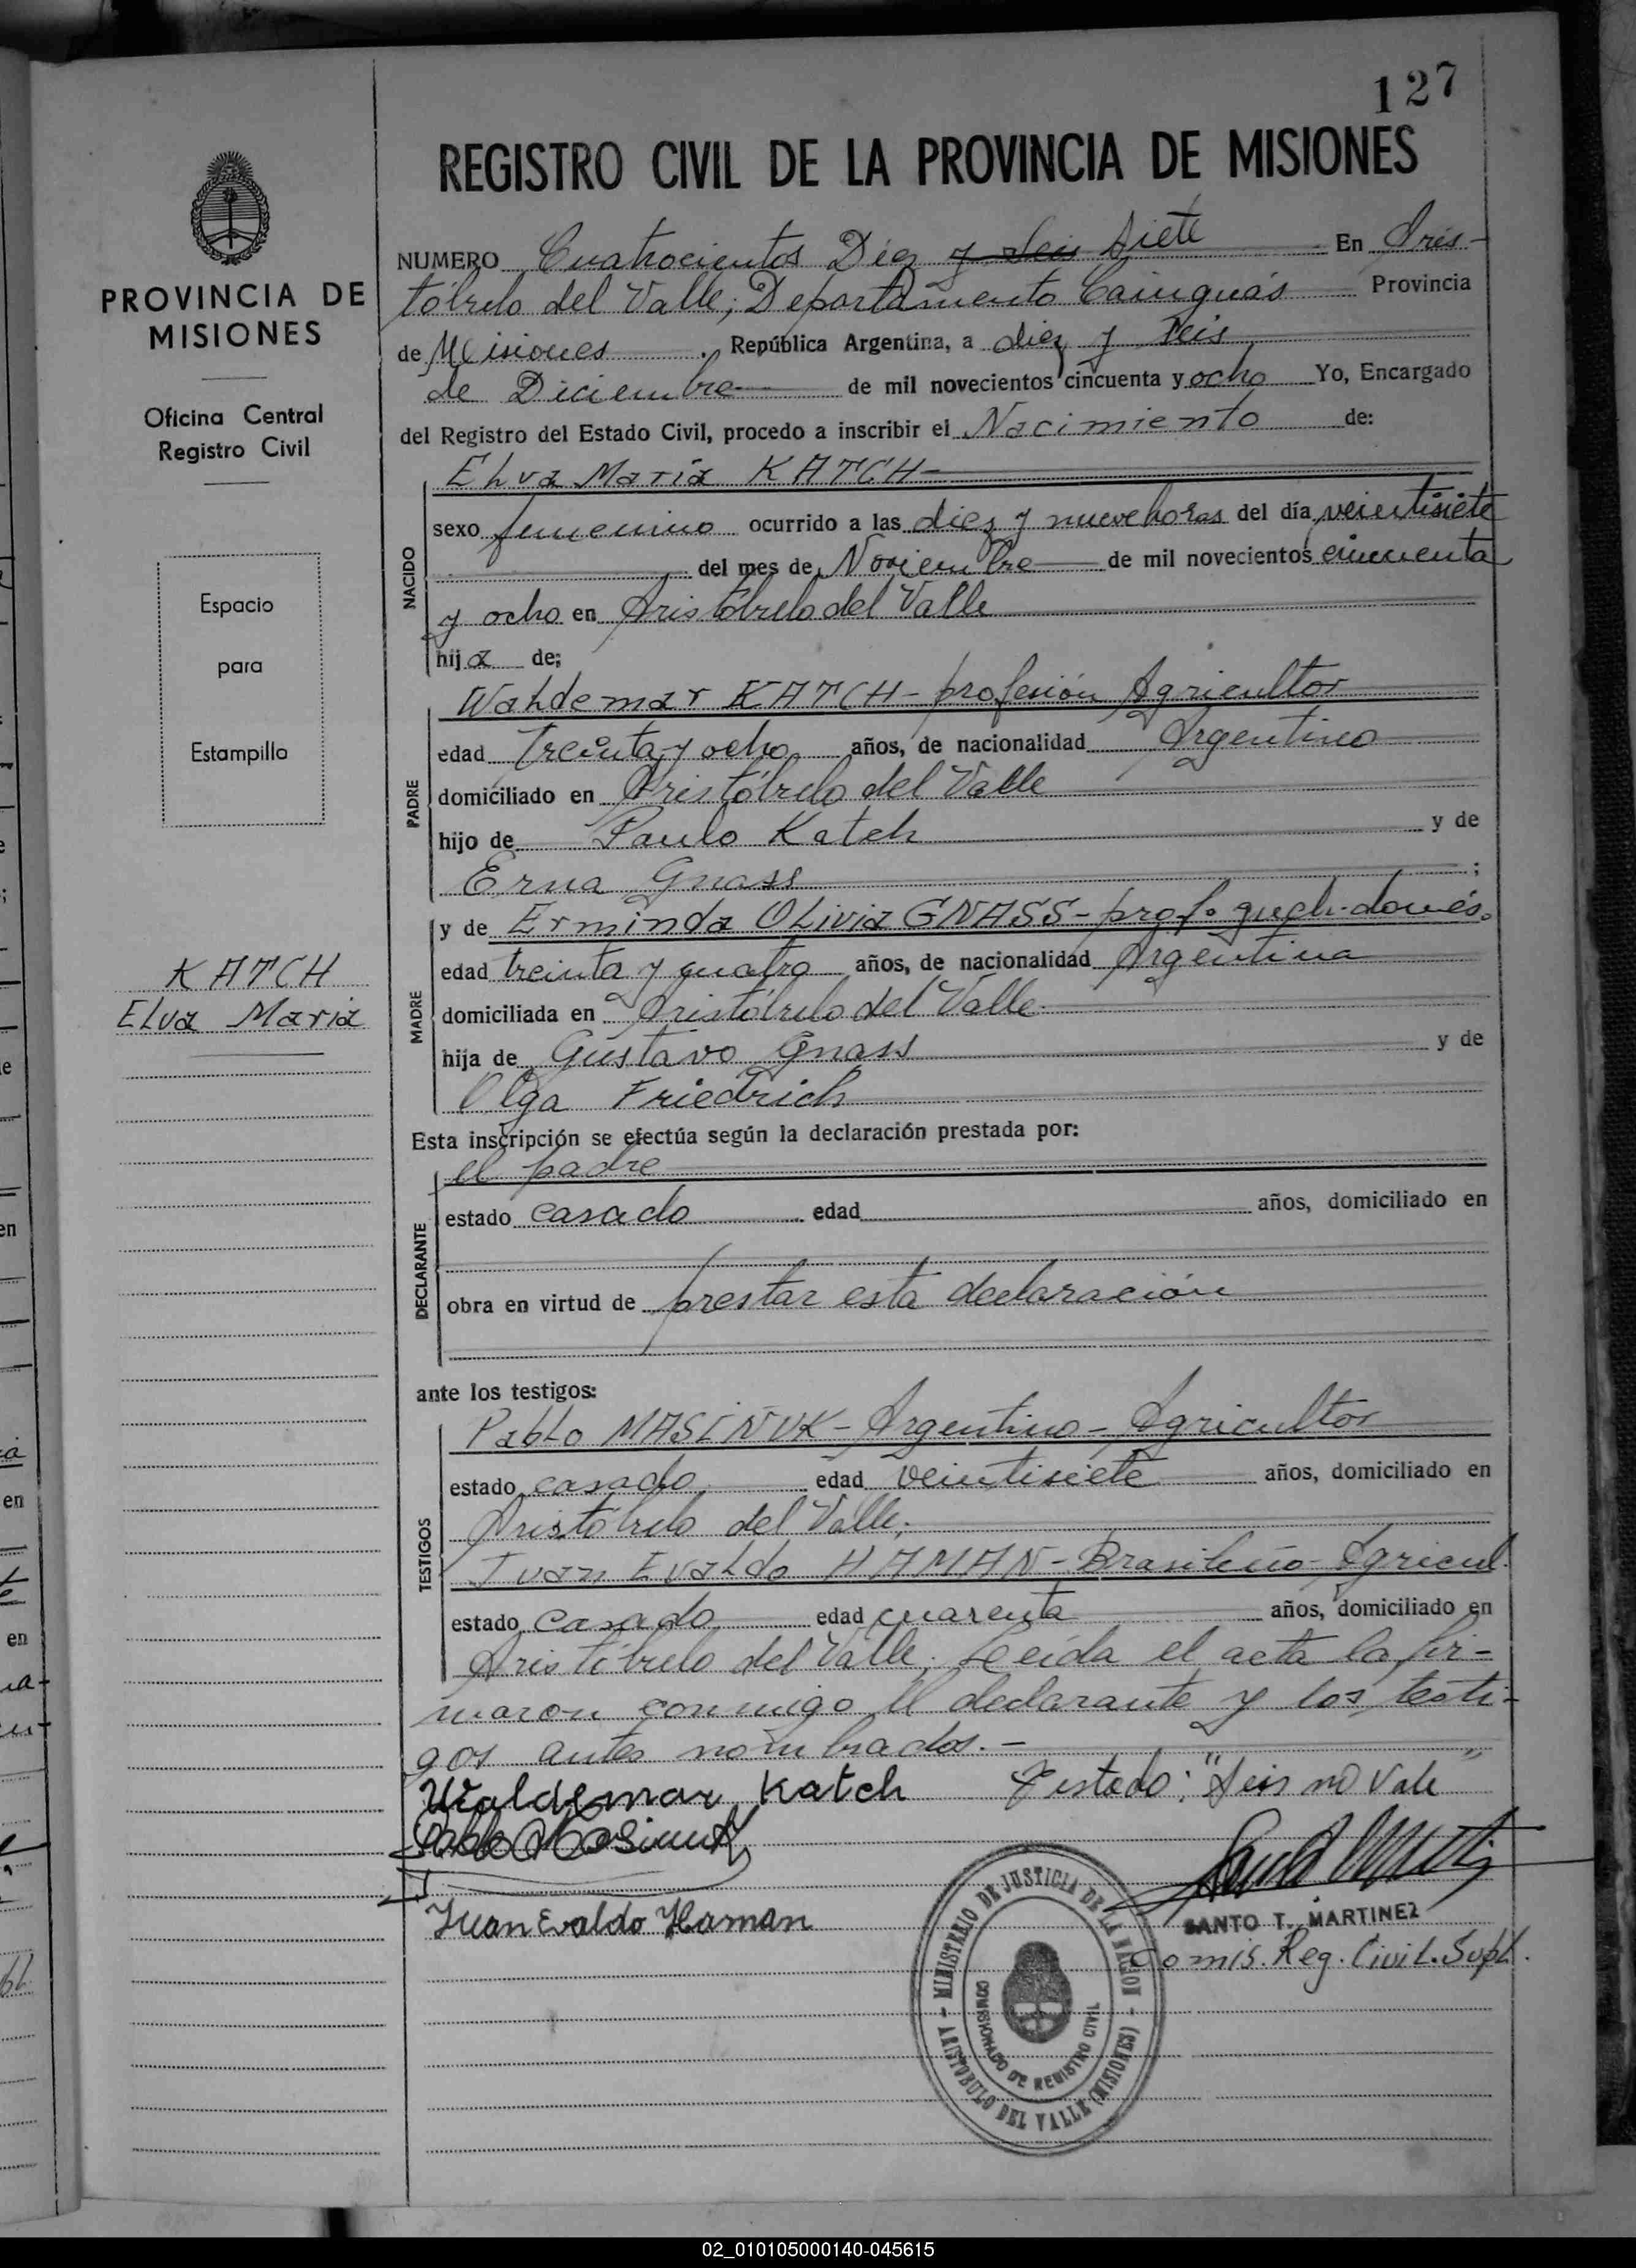 127
REGISTRO CIVIL DE LA PROVINCIA DE MISIONES
PROVINCIA DE
MISIONES
Oficina Central
Registro Civil
Espacio
para
Estampilla
KATCH
Elva Maria
NUMERO Cuatrocientos Diez y Seis Siete En Aris-
tóbulo del Valle; Departamento Cainguás Provincia
de Misiones. República Argentina, a diez y seis
de Diciembre de mil novecientos cincuenta y ocho Yo, Encargado
del Registro del Estado Civil, procedo a inscribir el Nacimiento de:
NACIDO
Elva Maria KATCH
sexo femenino ocurrido a las diez y nueve horas del día veintisiete
del mes de Noviembre de mil novecientos cincuenta
y ocho en Aristóbulo del Valle
hija de:
PADRE
Waldemar KATCH - profesión Agricultor
edad treinta y ocho años, de nacionalidad Argentino
domiciliado en Aristóbulo del Valle
hijo de Paulo Katch y de
Erna Gnass ;
MADRE
y de Erminda Olivia GNASS - prof. queh. domés.
edad treinta y cuatro años, de nacionalidad Argentina
domiciliada en Aristóbulo del Valle
hija de Gustavo Gnass y de
Olga Friedrich
Esta inscripción se efectúa según la declaración prestada por:
DECLARANTE
el padre
estado casado edad años, domiciliado en
obra en virtud de prestar esta declaración
ante los testigos:
TESTIGOS
Pablo MASIÑUK - Argentino - Agricultor
estado casado edad veintisiete años, domiciliado en
Aristóbulo del Valle;
Juan Evaldo HAMAN - Brasileño - Agricul.
estado casado edad cuarenta años, domiciliado en
Aristóbulo del Valle. Leída el acta la fir-
maron conmigo el declarante y los testi-
gos antes nombrados.-
Waldemar Katch Testado: "Seis no Vale"
Pablo Masiñuk
Juan Evaldo Haman
SANTO T. MARTINEZ
Comis. Reg. Civil. Supl.
MINISTERIO DE JUSTICIA DE LA NACION
COMISIONADO DE REGISTRO CIVIL
ARISTOBULO DEL VALLE (MISIONES)
02_010105000140-045615